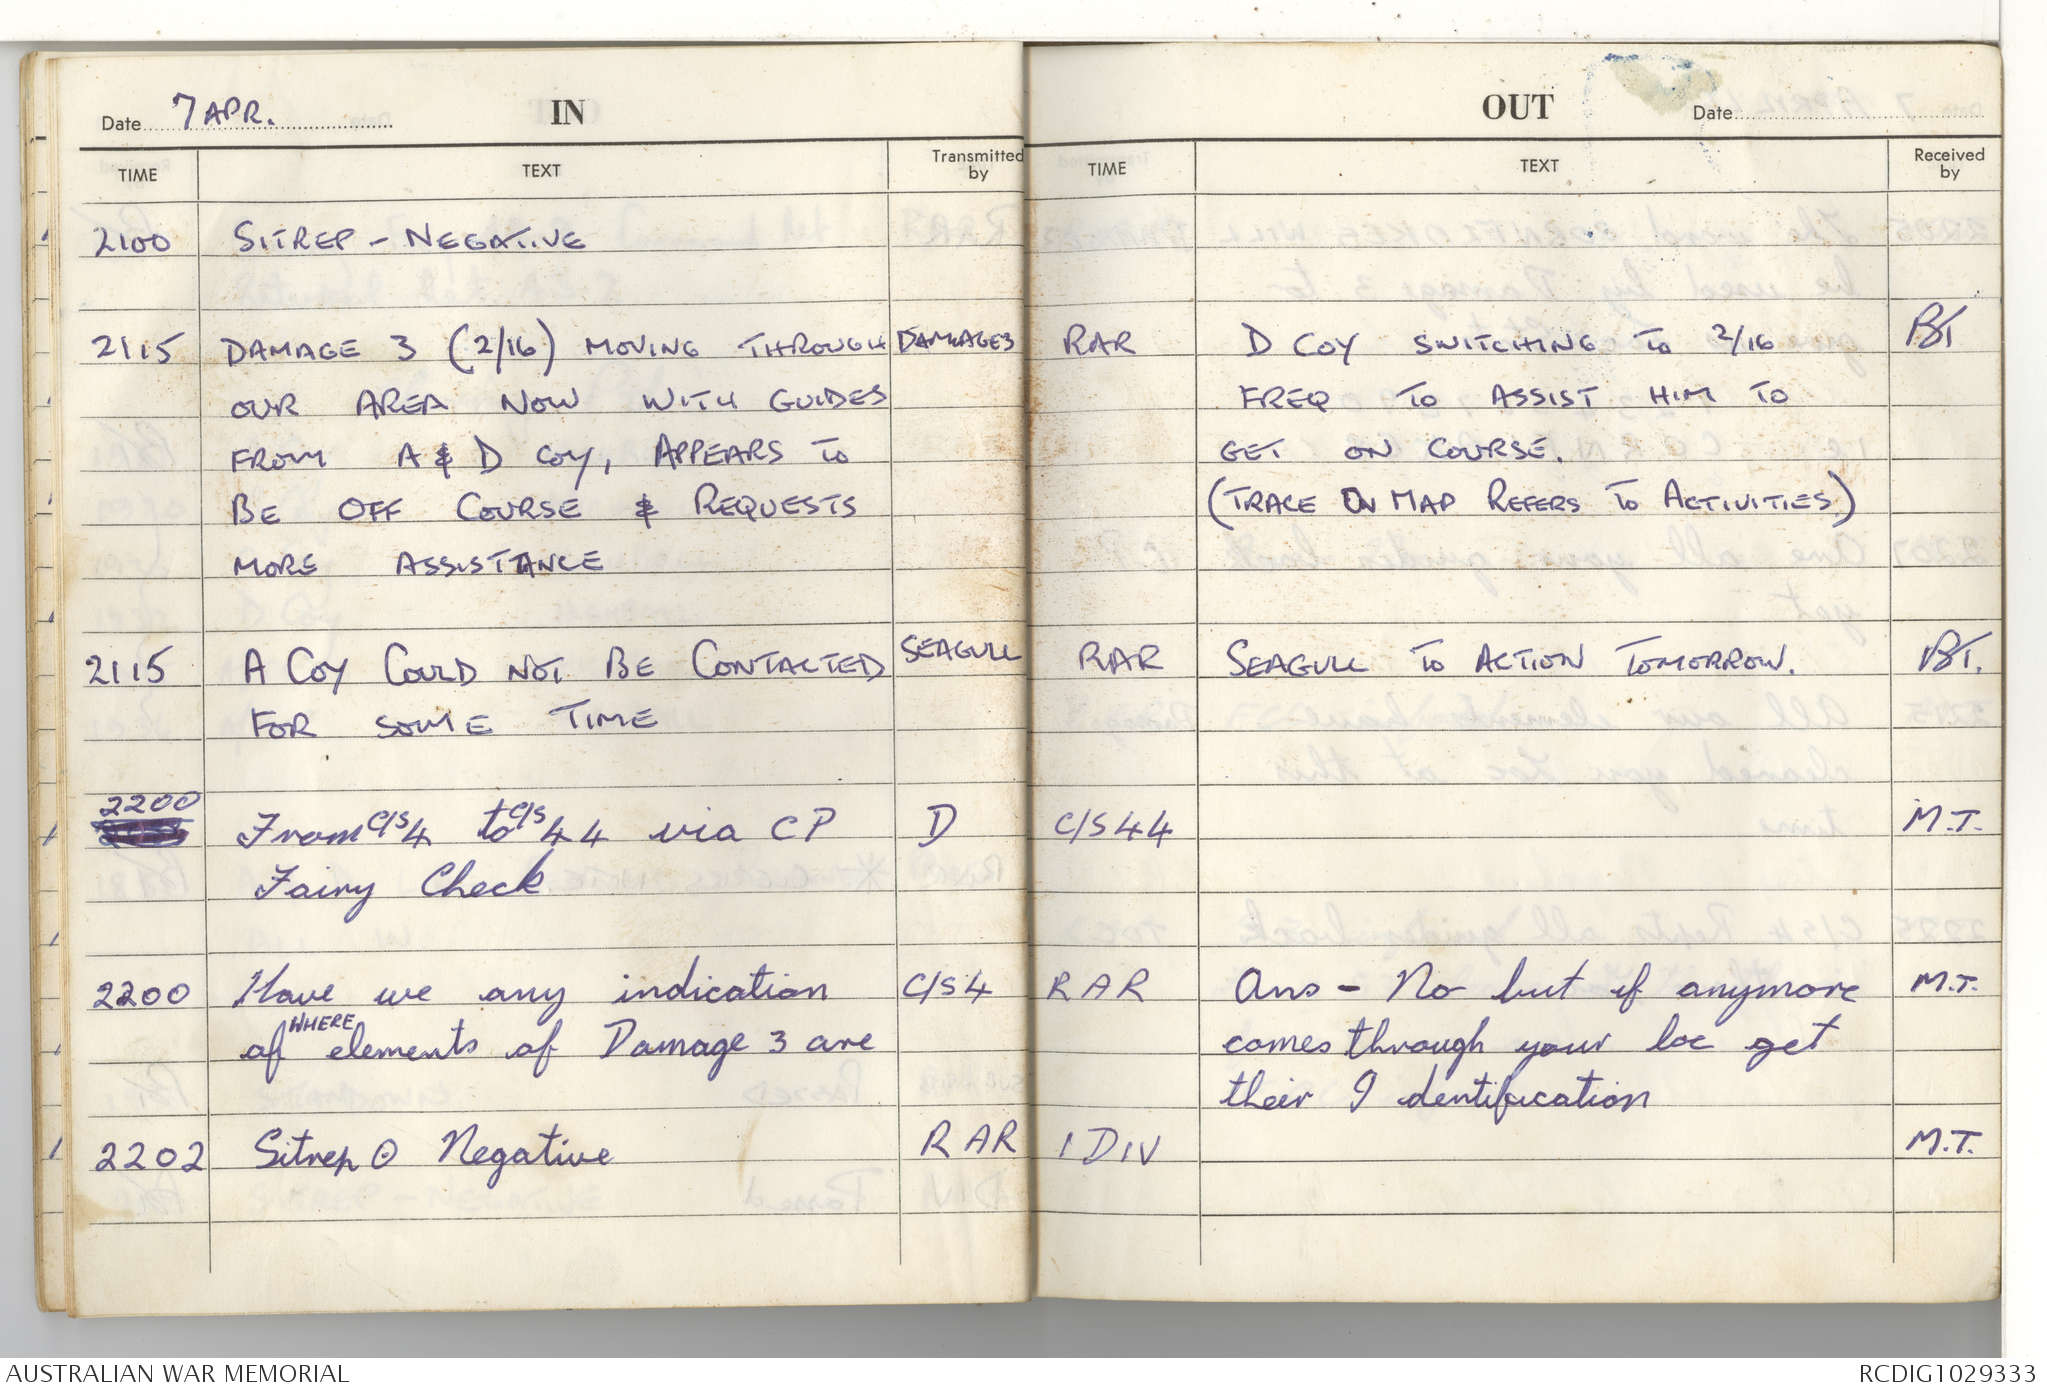 Date 7 APR. IN
TIME TEXT Transmitted by
2100 SITREP - NEGATIVE
2115 DAMAGE 3 (2/16) MOVING THROUGH DAMAGE 3
OUR AREA NOW WITH GUIDES
FROM A & D COY, APPEARS TO
BE OFF COURSE & REQUESTS
MORE ASSISTANCE
2115 A COY COULD NOT BE CONTACTED SEAGULL
FOR SOME TIME
2200
From C/S 4 to C/S 44 via CP D
Fairy Check
2200 Have we any indication C/S 4
of WHERE elements of Damage 3 are
2202 Sitrep O Negative RAR
OUT Date
TIME TEXT Received by
RAR D COY SWITCHING TO 2/16 BT
FREQ TO ASSIST HIM TO
GET ON COURSE.
(TRACE ON MAP REFERS TO ACTIVITIES)
RAR SEAGULL TO ACTION TOMORROW. BT.
C/S 44 M.T.
RAR Ans - No but if anymore M.T.
comes through your loc get
their Identification
1 DIV M.T.
AUSTRALIAN WAR MEMORIAL RCDIG1029333